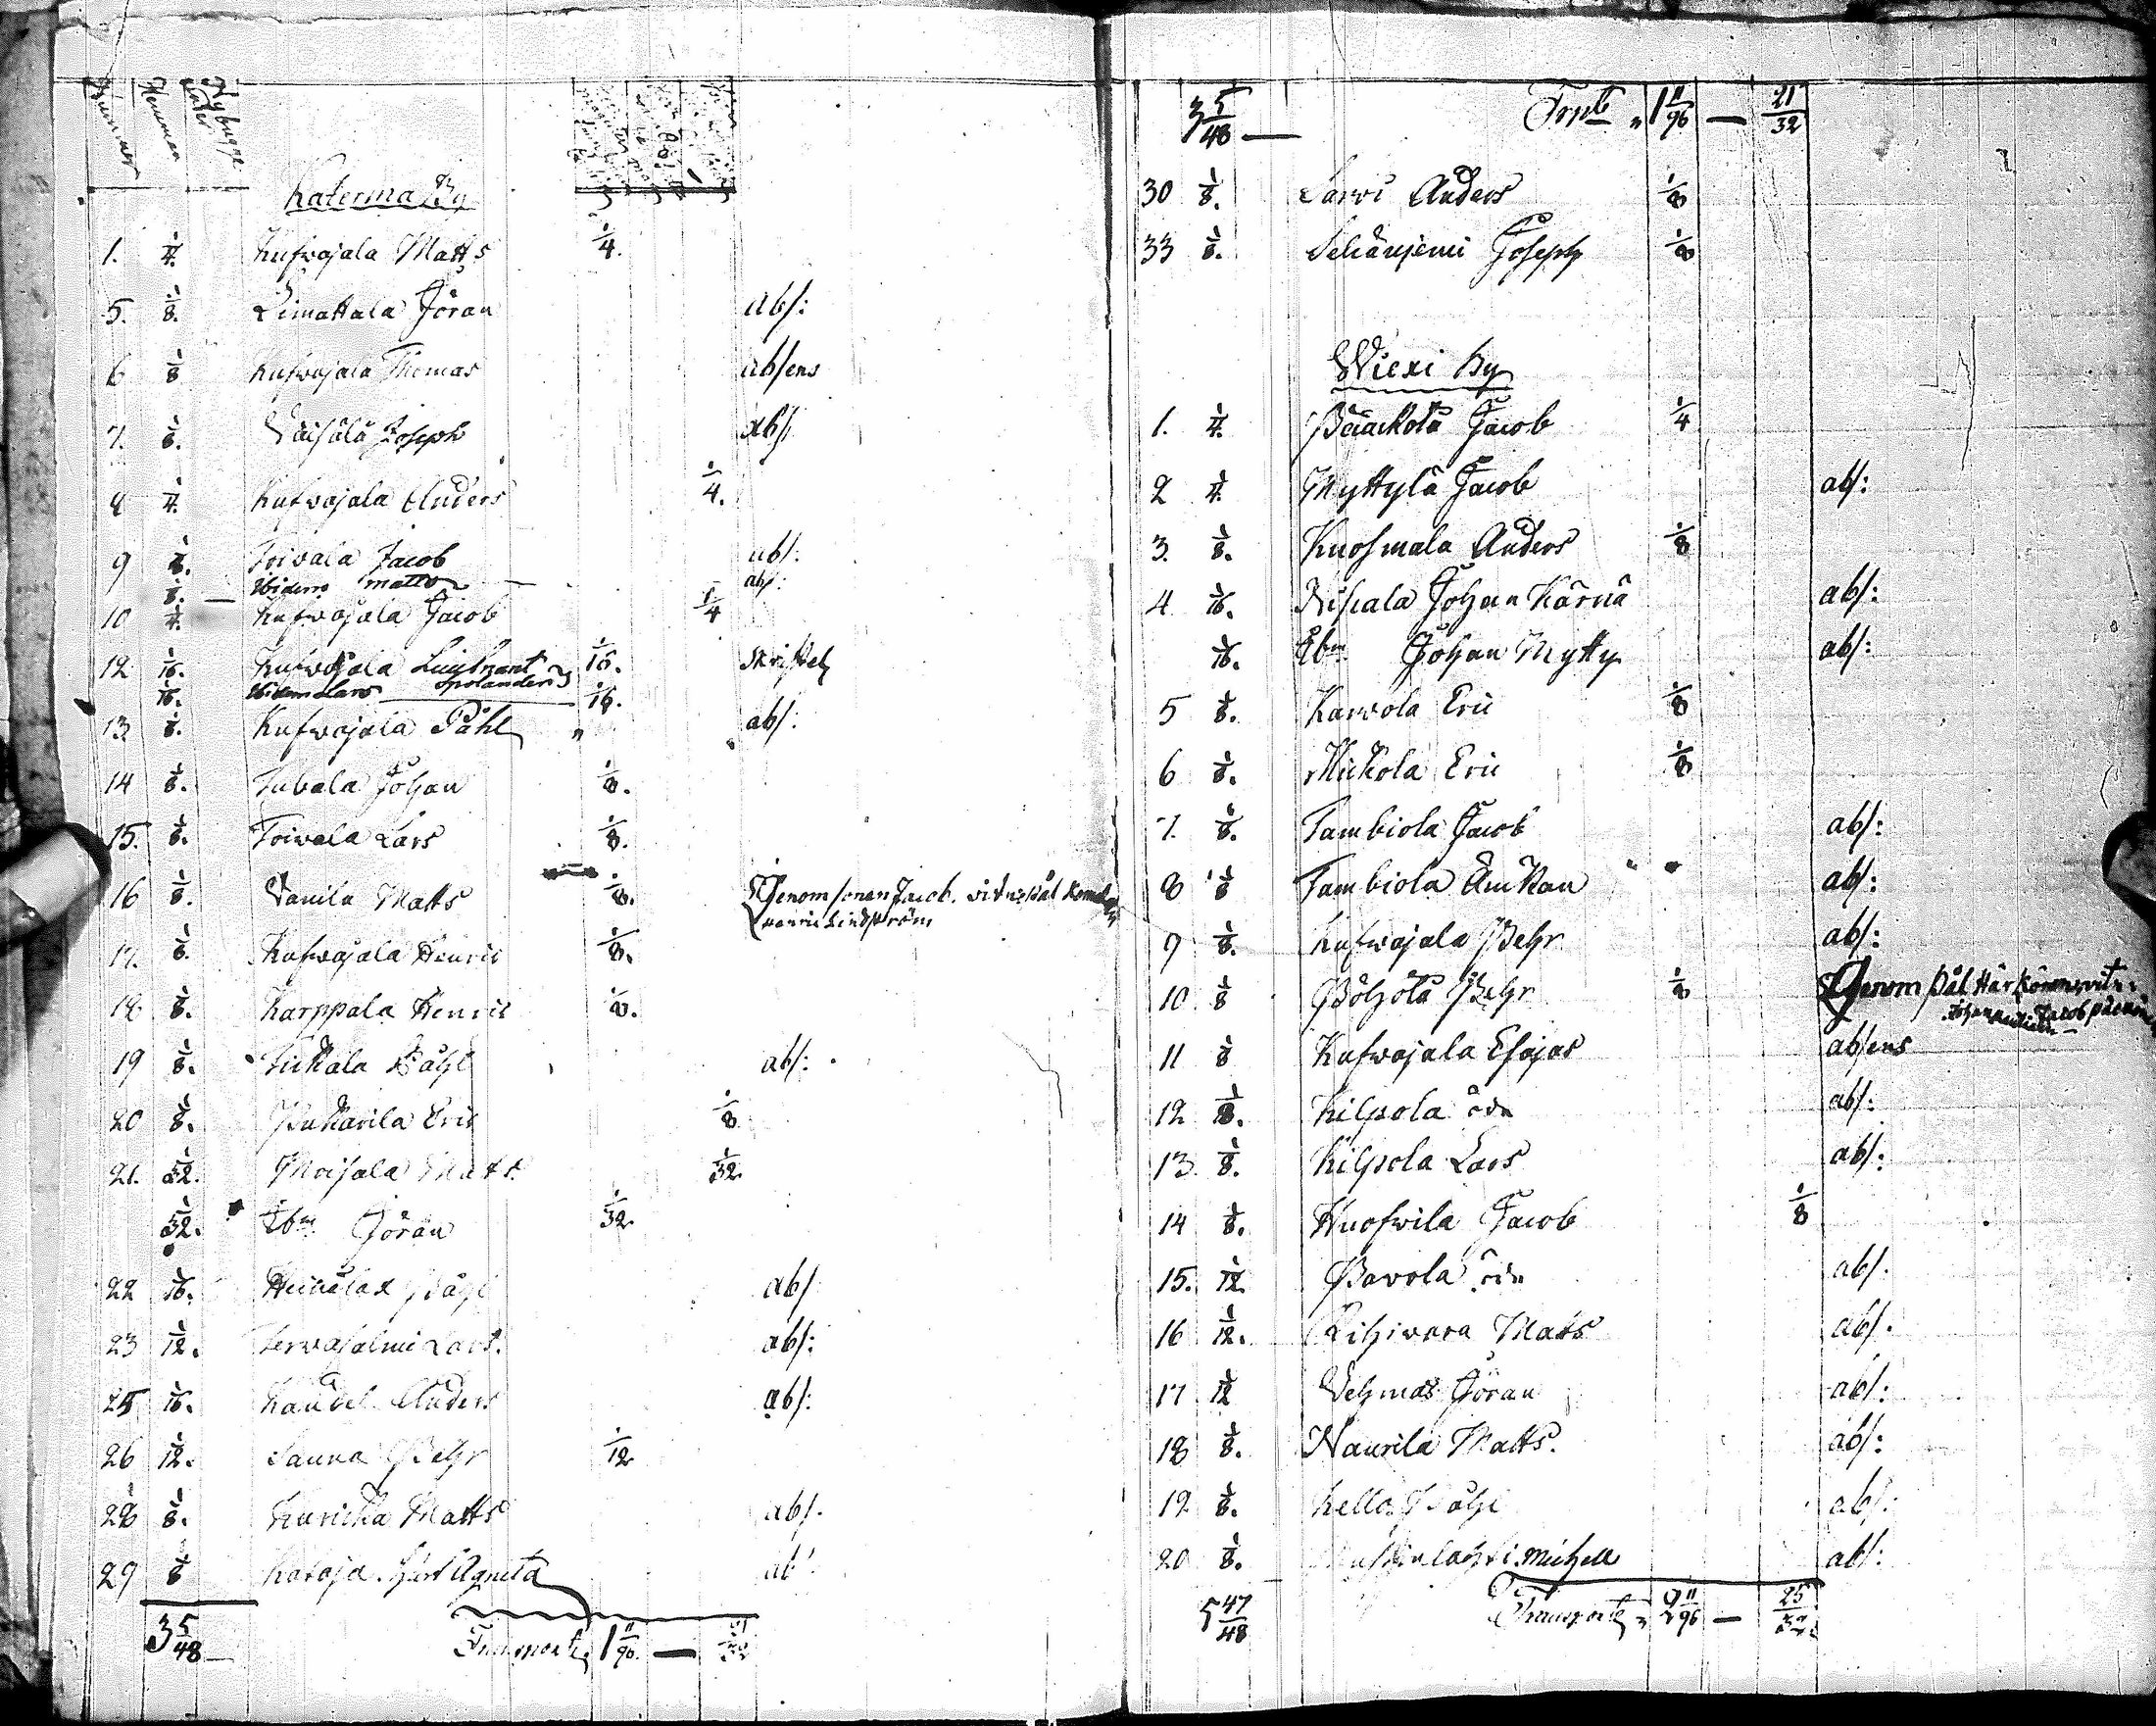 Nummer Hemman Nybygge
Katerma By
1. 1/4. Kufwajala Matts 1/4.
5. 1/8. Limattala Jöran abs:
6 1/8 Kufwajala Thomas absens
7. 1/8. Väisälä Joseph abs
8 1/4. Kufwajala Anders 1/4.
9 1/8. Toivala Jacob abs:
1/8. — Ibidem matts — abs:
10 1/4. Kufwajala Jacob 1/4
12 1/16. Kufwajala Luitnant 1/16. skriftel
1/16. Ibidem Lars Spolanders 1/16.
13 1/8. Kufwajala Påhl " abs:
14 1/8. Tubala Johan 1/8.
15. 1/8. Toivala Lars 1/8.
16 1/8. Vanila Matts 1/8. Genom sonen Jacob. vitne Pål
Lindström
17. 1/8. Kufwajala Henric 1/8.
18 1/8. Karppala Henric 1/8.
19 1/8. Tickala Påhl abs:
20 1/8. Puckarila Eric 1/8
21. 1/32. Moisala Matts 1/32.
1/32. Ibm Jöran 1/32.
22 1/16. Heinälax Påhl abs
23 1/12. Terwasalmi Lars. abs:
25 1/16. Kaüdel Anders abs:
26 1/12. Sauna Pehr 1/12
28 1/8. Kuricka Matts abs.
29 1/8 Kataja Agneta abs.
3 5/48 Transport 1 11/96 — 21/32
3 5/48 — Trpt " 1 11/96 — 21/32
30 1/8. Sarvi Anders 1/8
33 1/8. Selkänjemi Joseph 1/8
Wiexi By
1. 1/4. Pääckölä Jacob 1/4
2 1/4. Myttylä Jacob abs:
3. 1/8. Kuosmala Anders 1/8
4 1/16. Niskala Johan Kärnä abs:
1/16. Ibm Johan Mytty abs:
5 1/8. Karvola Eric 1/8
6 1/8. Mickola Eric 1/8
7. 1/8. Tambiola Jacob abs:
8 1/8 Tambiola Änkan abs:
9 1/8. Kufwajala Pehr abs:
10 1/8 Pöhölä Pehr 1/8 Genom Pål Härkönen vitn:
Jacob
11 1/8 Kufwajala Esajas absens
12 1/8. Kilpola öde abs:
13. 1/8. Kilpola Lars abs:
14 1/8. Huofwila Jacob 1/8
15. 1/12. Pavola öde abs.
16 1/12. Rihiwara Matts abs.
17 1/12 Vehmas Jöran abs:
18 1/8. Naurila Matts. abs:
19 1/8. Kello Påhl abs:
20 1/8. Michell abs:
5 47/48 Transport " 2 11/96 — 25/32